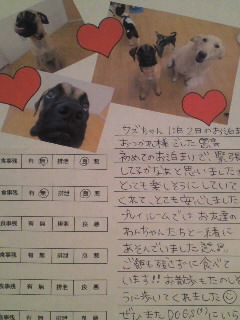 サズちゃん 1泊2日のお泊ま
おつかれ様でした
初めてのお泊まりで、緊張
してるかなぁと思いましたが
とっても楽しそうにしていて
くれて、とても安心しました
プレイルームでは お友達の
わんちゃんたちと一緒に
あそんでいました
ご飯も残さずに食べて
います!! お散歩もたのしそ
うに歩いてくれました
ぜひまた DOGS に いら
食事残 有 無 排泄 良 悪
食事残 有 無 排泄 良 悪
食事残 有 無 排泄 良 悪
食事残 有 無 排泄 良 悪
食事残 有 無 排泄 良 悪